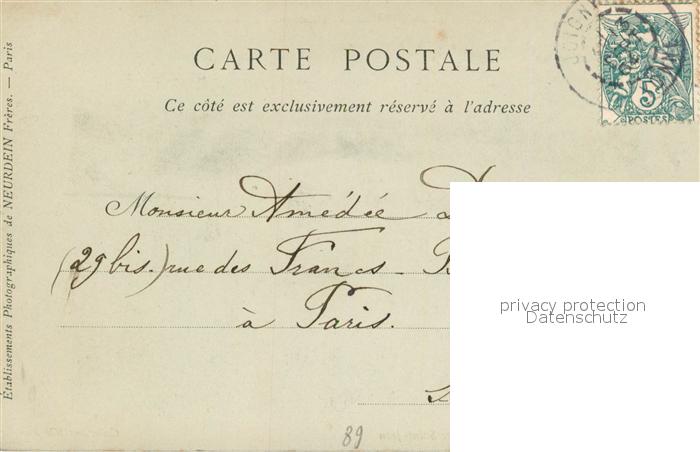 CARTE POSTALE
Ce côté est exclusivement réservé à l'adresse
5
POSTES
Monsieur Amédée
(29 bis.) rue des Francs-
à Paris.
privacy protection
Datenschutz
89
Établissements Photographiques de NEURDEIN Frères. — Paris